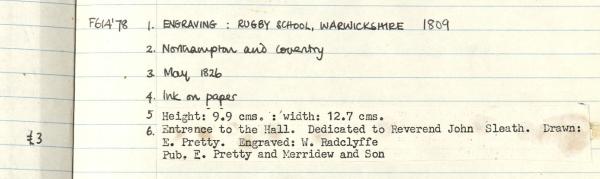 F61A'78 1. ENGRAVING : RUGBY SCHOOL, WARWICKSHIRE 1809
2. Northampton and Coventry
3. May 1826
4. Ink on paper
5 Height: 9.9 cms. : width: 12.7 cms.
£3 6. Entrance to the Hall. Dedicated to Reverend John Sleath. Drawn:
E. Pretty. Engraved: W. Radclyffe
Pub. E. Pretty and Merridew and Son